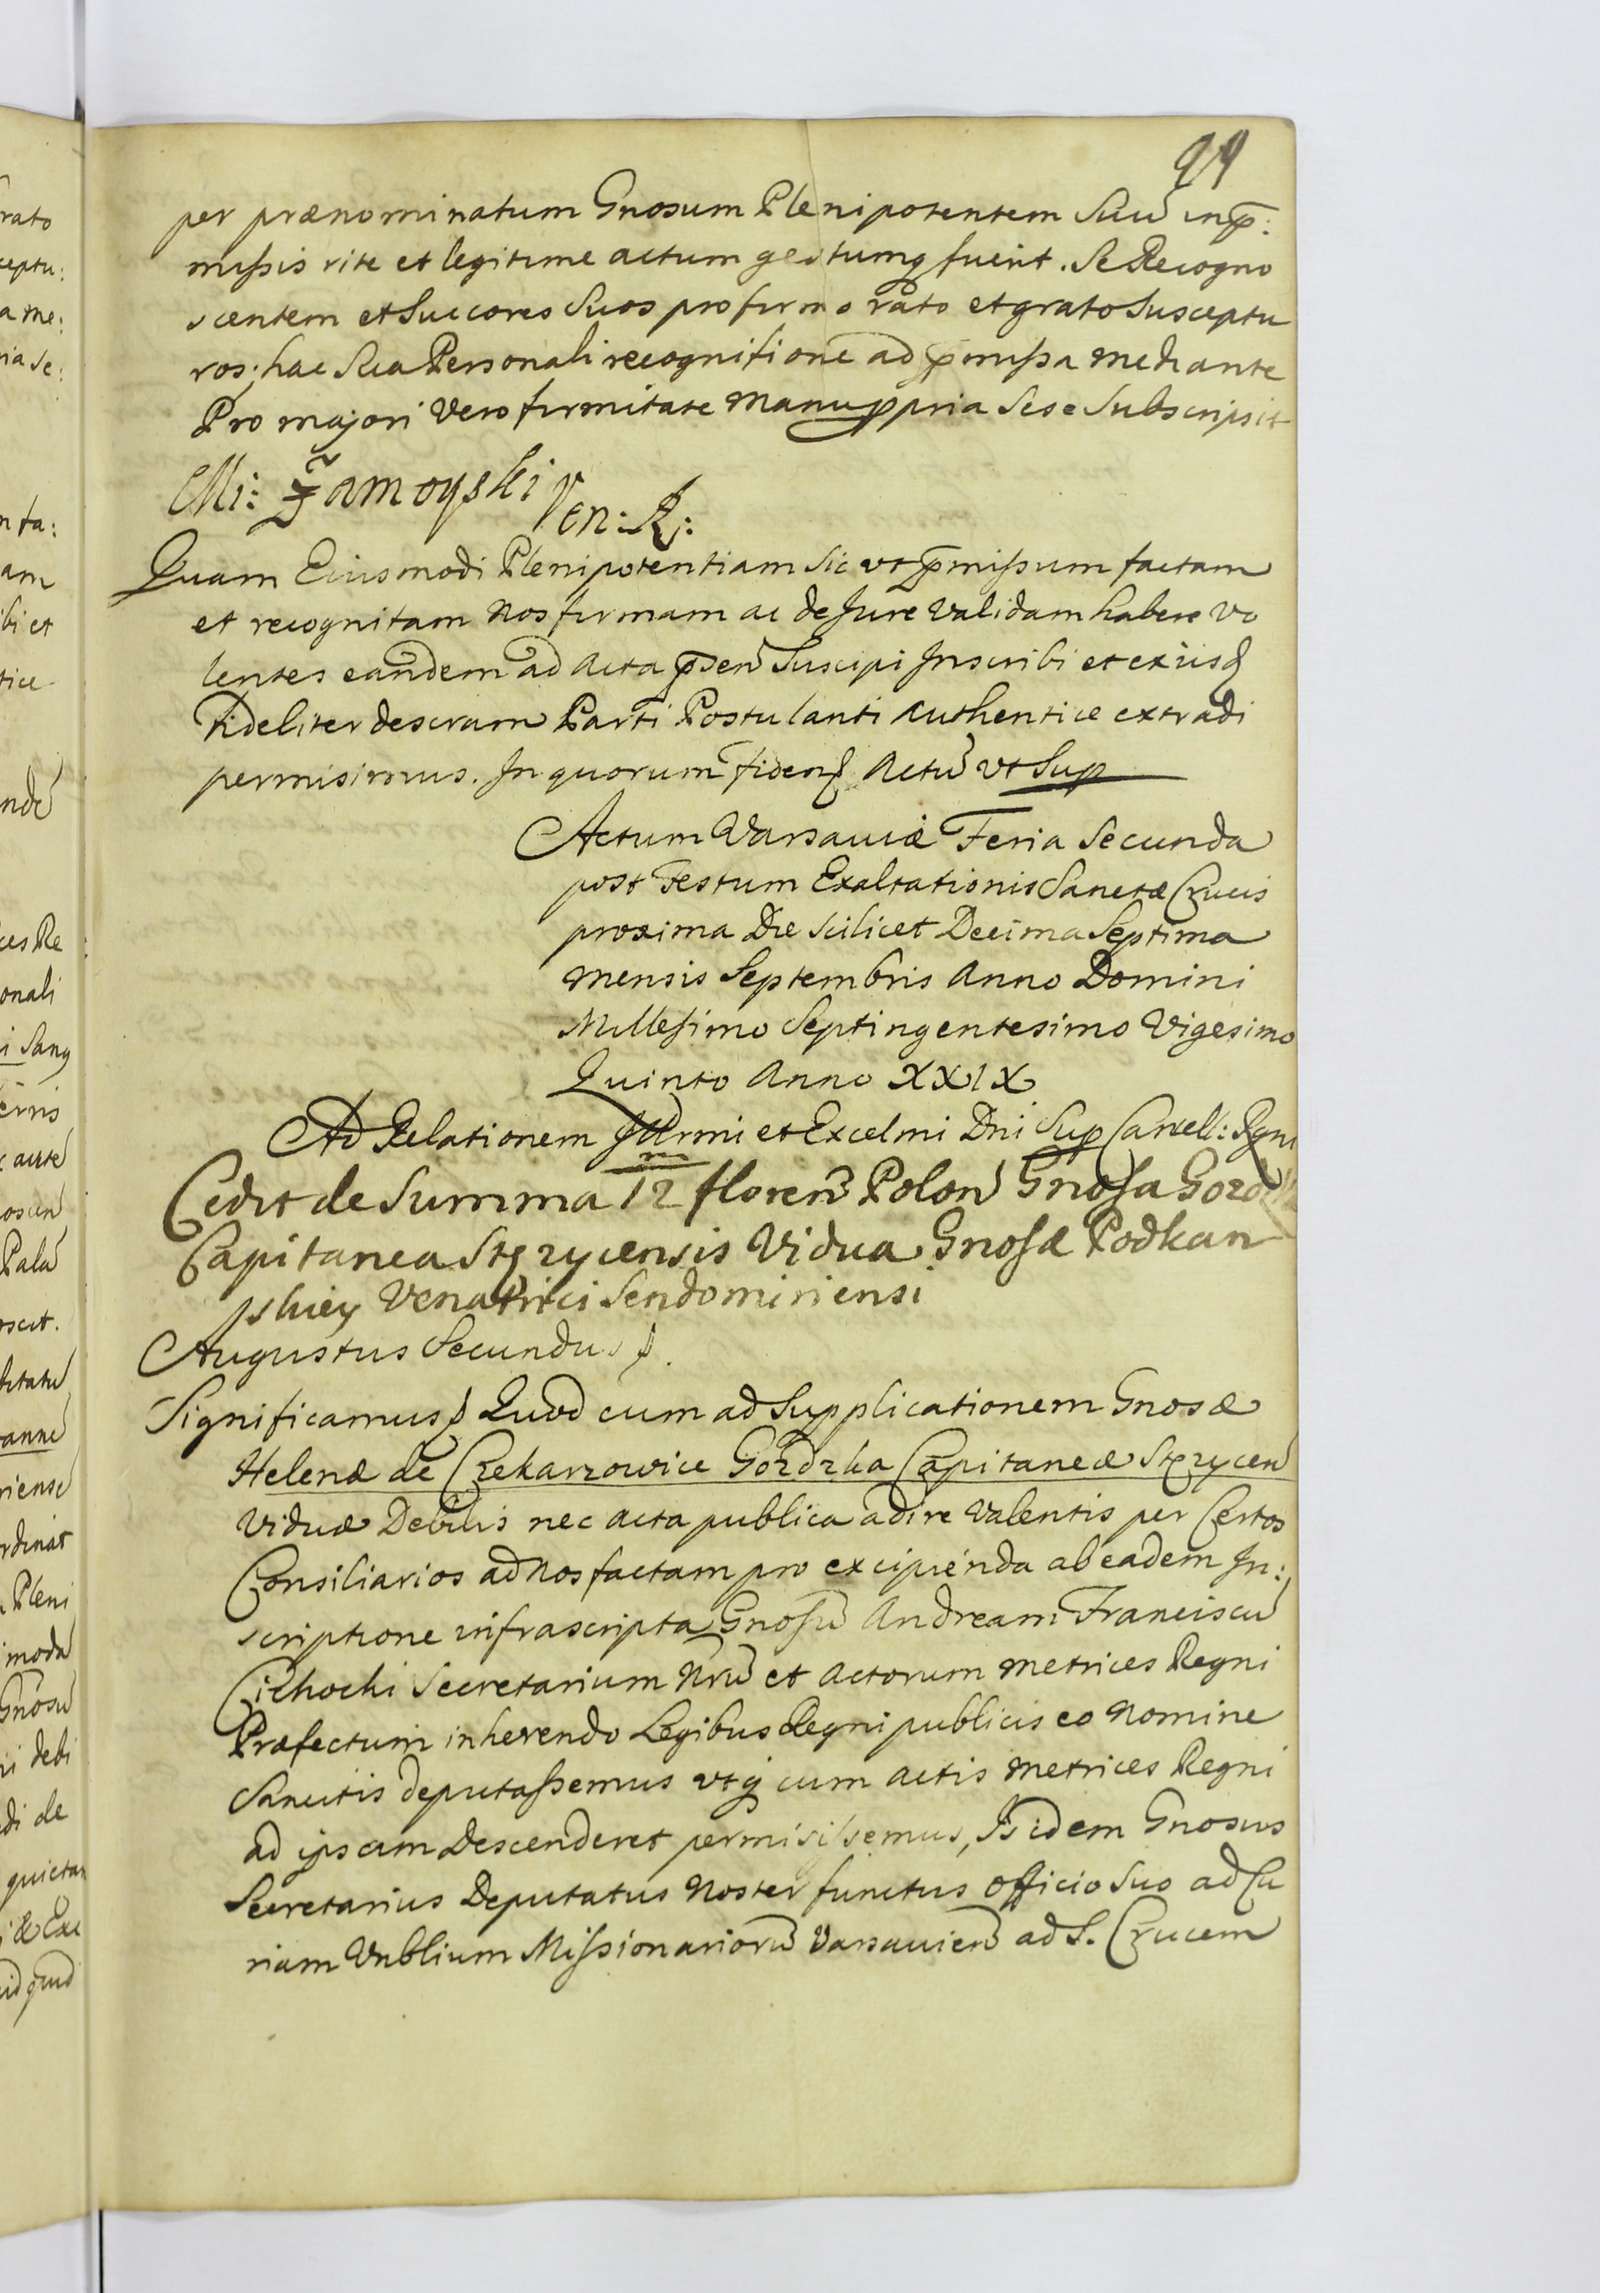 99
per prænominatum Gnosum Plenipotentem Suũ in p̃:
missis rite et legitime actum gestumq fuerit. Se Recogno
scentem et Succores Suos pro firmo rato et grato Susceptu
ros; hac Sua Personali recognitione ad p̃missa mediante
Pro majori Vero firmitate Manu ppria Sese Subscripsit
Mi: Zamoyski Ven: R:
Quam Eiusmodi Plenipotentiam Sic vt p̃missum factam
et recognitam Nos firmam ac de Jure Validam habere vo
lentes eandem ad Acta p̃sen Suscipi Inscribi et exiusd
fideliter descram Parti Postulanti Authentice extradi
permisimus. In quorum fidem Actũ vt Sup
Actum Varsaviæ Feria Secunda
post Festum Exaltationis Sanctæ Crucis
proxima Die Scilicet Decima Septima
Mensis Septembris Anno Domini
Millesimo Septingentesimo Vigesimo
Quinto Anno XXIX
Ad Relationem Illrmi et Excelmi Dni Sup Cancell: Rgni
Cedit de Summa 12 m floren Polon Gnosa Gozdzka
Capitanea Stęzycensis Vidua Gnosæ Podkan
skiey Venatrici Sendomiriensi
Augustus Secundus
Significamus Quod cum ad Supplicationem Gnosæ
Helenæ de Czekarzowice Gozdzka Capitaneæ Stęzycen
Viduæ Debilis nec acta publica adire Valentis per Certos
Consiliarios ad Nos factam pro excipienda ab eadem In:
scriptione infrascripta Gnosũ Andream Franciscũ
Cichocki Secretarium Nrũ et Actorum Metrices Regni
Præfectum inherendo Legibus Regni publicis eo Nomine
Sancitis deputassemus vtq cum Actis Metrices Regni
ad ipsam Descenderet permisissemus, Is idem Gnosus
Secretarius Deputatus Noster functus Officio Suo ad Cu
riam Vnblium Missionariorũ Varsavien ad S. Crucem